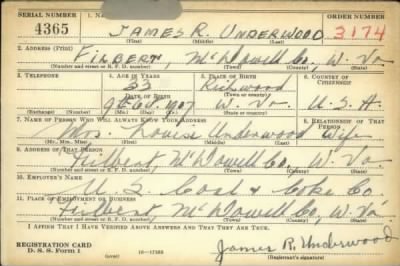 SERIAL NUMBER 1. NAME (Print) ORDER NUMBER
4365 JAMES R. UNDERWOOD 3174
(First) (Middle) (Last)
2. ADDRESS (Print)
FILBERT, McDowell Co, W. Va
(Number and street or R. F. D. number) (Town) (County) (State)
3. TELEPHONE 4. AGE IN YEARS 5. PLACE OF BIRTH 6. COUNTRY OF CITIZENSHIP
33 Richwood
DATE OF BIRTH (Town or county)
9th Oct. 1907 W. Va U. S. A.
(Exchange) (Number) (Mo.) (Day) (Yr.) (State or country)
7. NAME OF PERSON WHO WILL ALWAYS KNOW YOUR ADDRESS 8. RELATIONSHIP OF THAT PERSON
Mrs. Louise Underwood Wife
(Mr., Mrs., Miss) (First) (Middle) (Last)
9. ADDRESS OF THAT PERSON
Filbert, McDowell Co, W. Va.
(Number and street or R. F. D. number) (Town) (County) (State)
10. EMPLOYER'S NAME
U. S. Coal & Coke Co
11. PLACE OF EMPLOYMENT OR BUSINESS
Filbert, McDowell Co, W. Va
(Number and street or R. F. D. number) (Town) (County) (State)
I AFFIRM THAT I HAVE VERIFIED ABOVE ANSWERS AND THAT THEY ARE TRUE.
REGISTRATION CARD
D. S. S. Form 1 (over) James R. Underwood
(Registrant's signature)